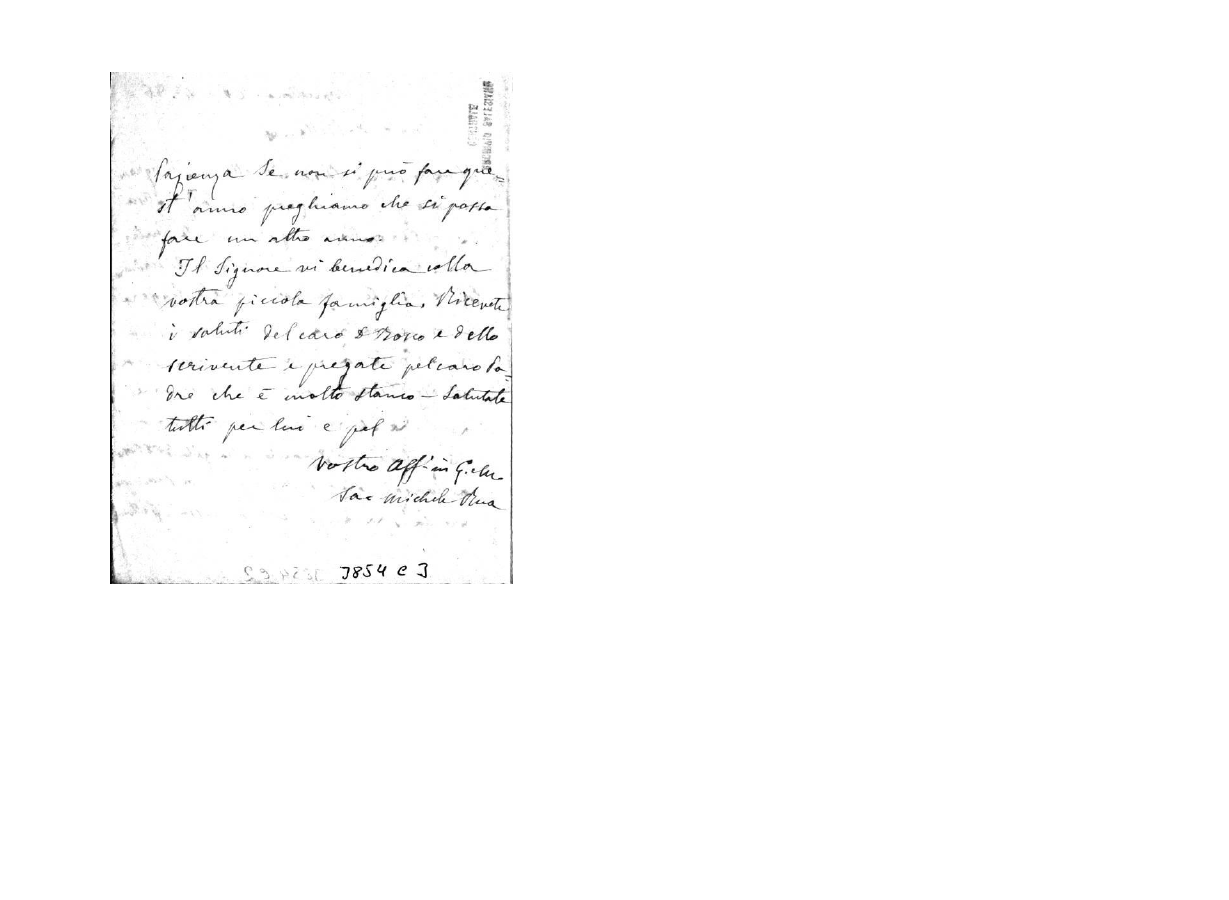 Pazienza Se non si può fare que=
st'anno preghiamo che si possa
fare un altro anno.
Il Signore vi benedica colla
vostra piccola famiglia. Ricevete
i saluti del caro D Bosco e dello
scrivente e pregate pel caro Pa=
dre che è molto stanco – Salutate
tutti per lui e pel
Vostro Aff. in G. e M.
Sac Michele Rua
3854 C 3